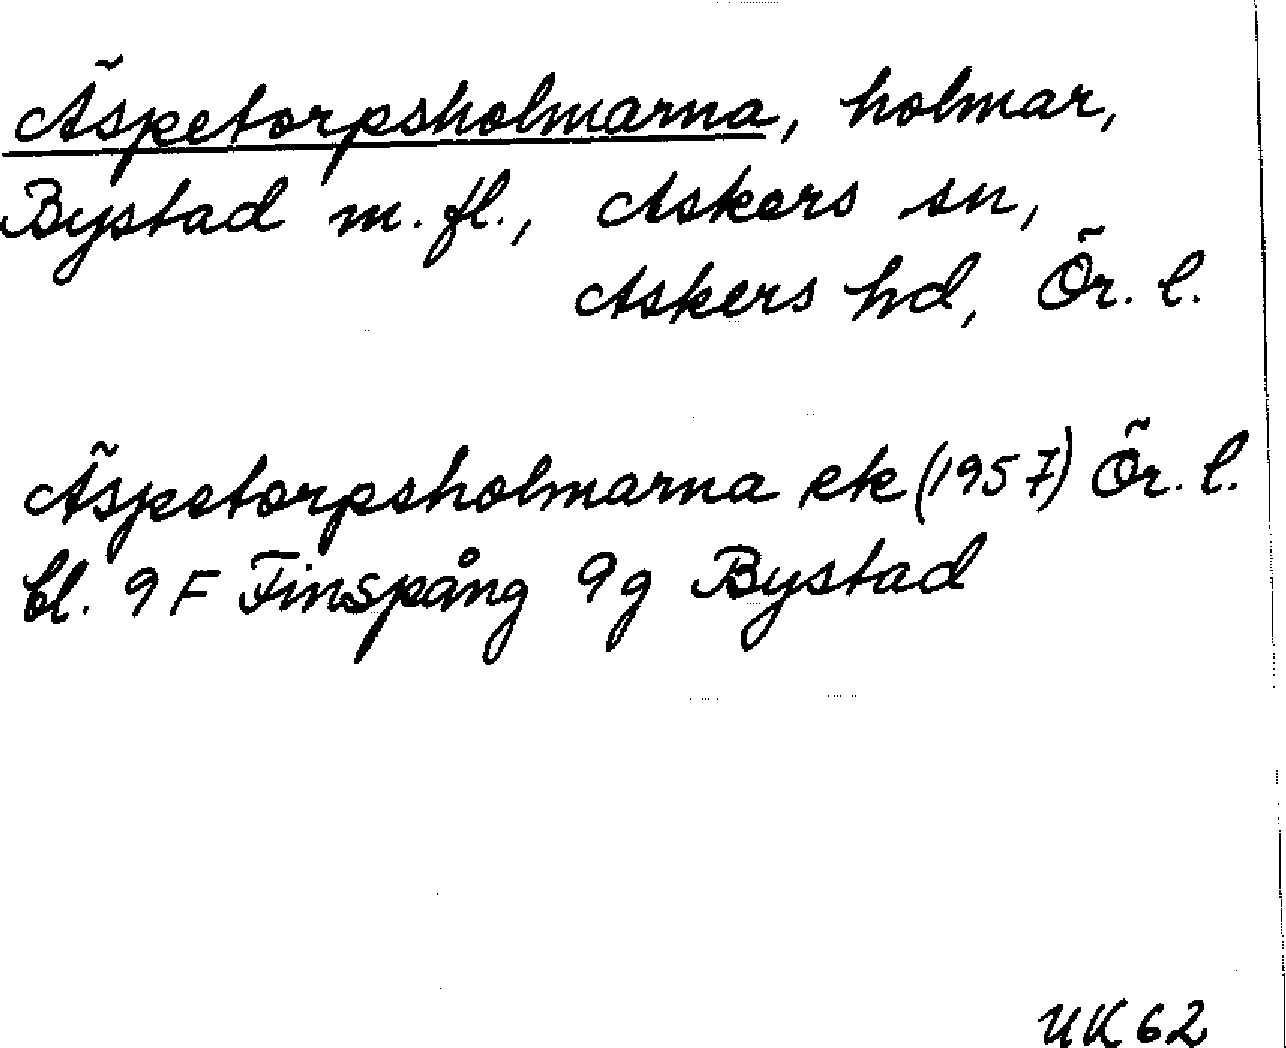 Äspetorpsholmarna, holmar,
Bystad m. fl., Askers sn,
Askers hd, Ör. l.
Äspetorpsholmarna ek (1957) Ör. l.
bl. 9 F Finspång 9g Bystad
UK 62